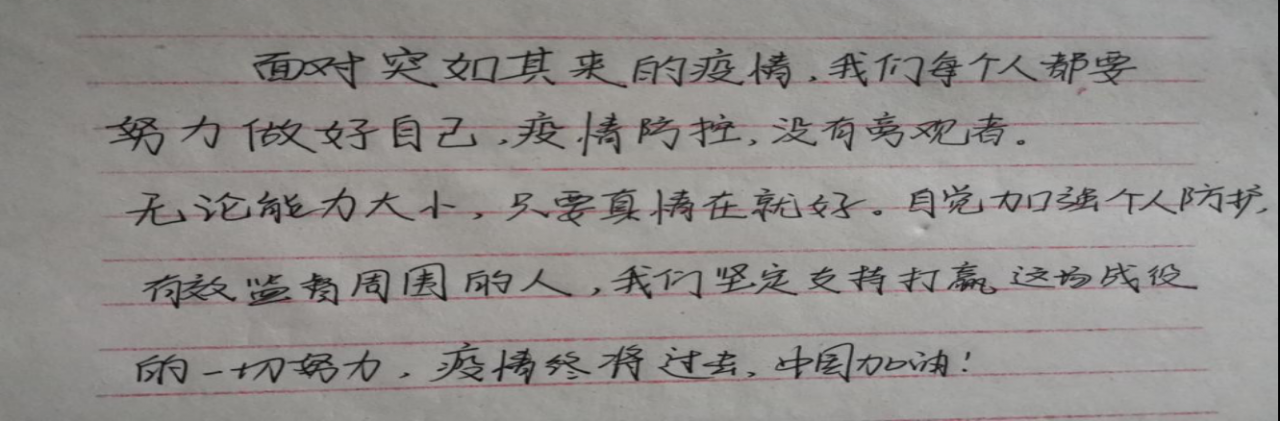 面对突如其来的疫情，我们每个人都要
努力做好自己，疫情防控，没有旁观者。
无论能力大小，只要真情在就好。自觉加强个人防护，
有效监督周围的人，我们坚定支持打赢这场战役
的一切努力，疫情终将过去，中国加油！